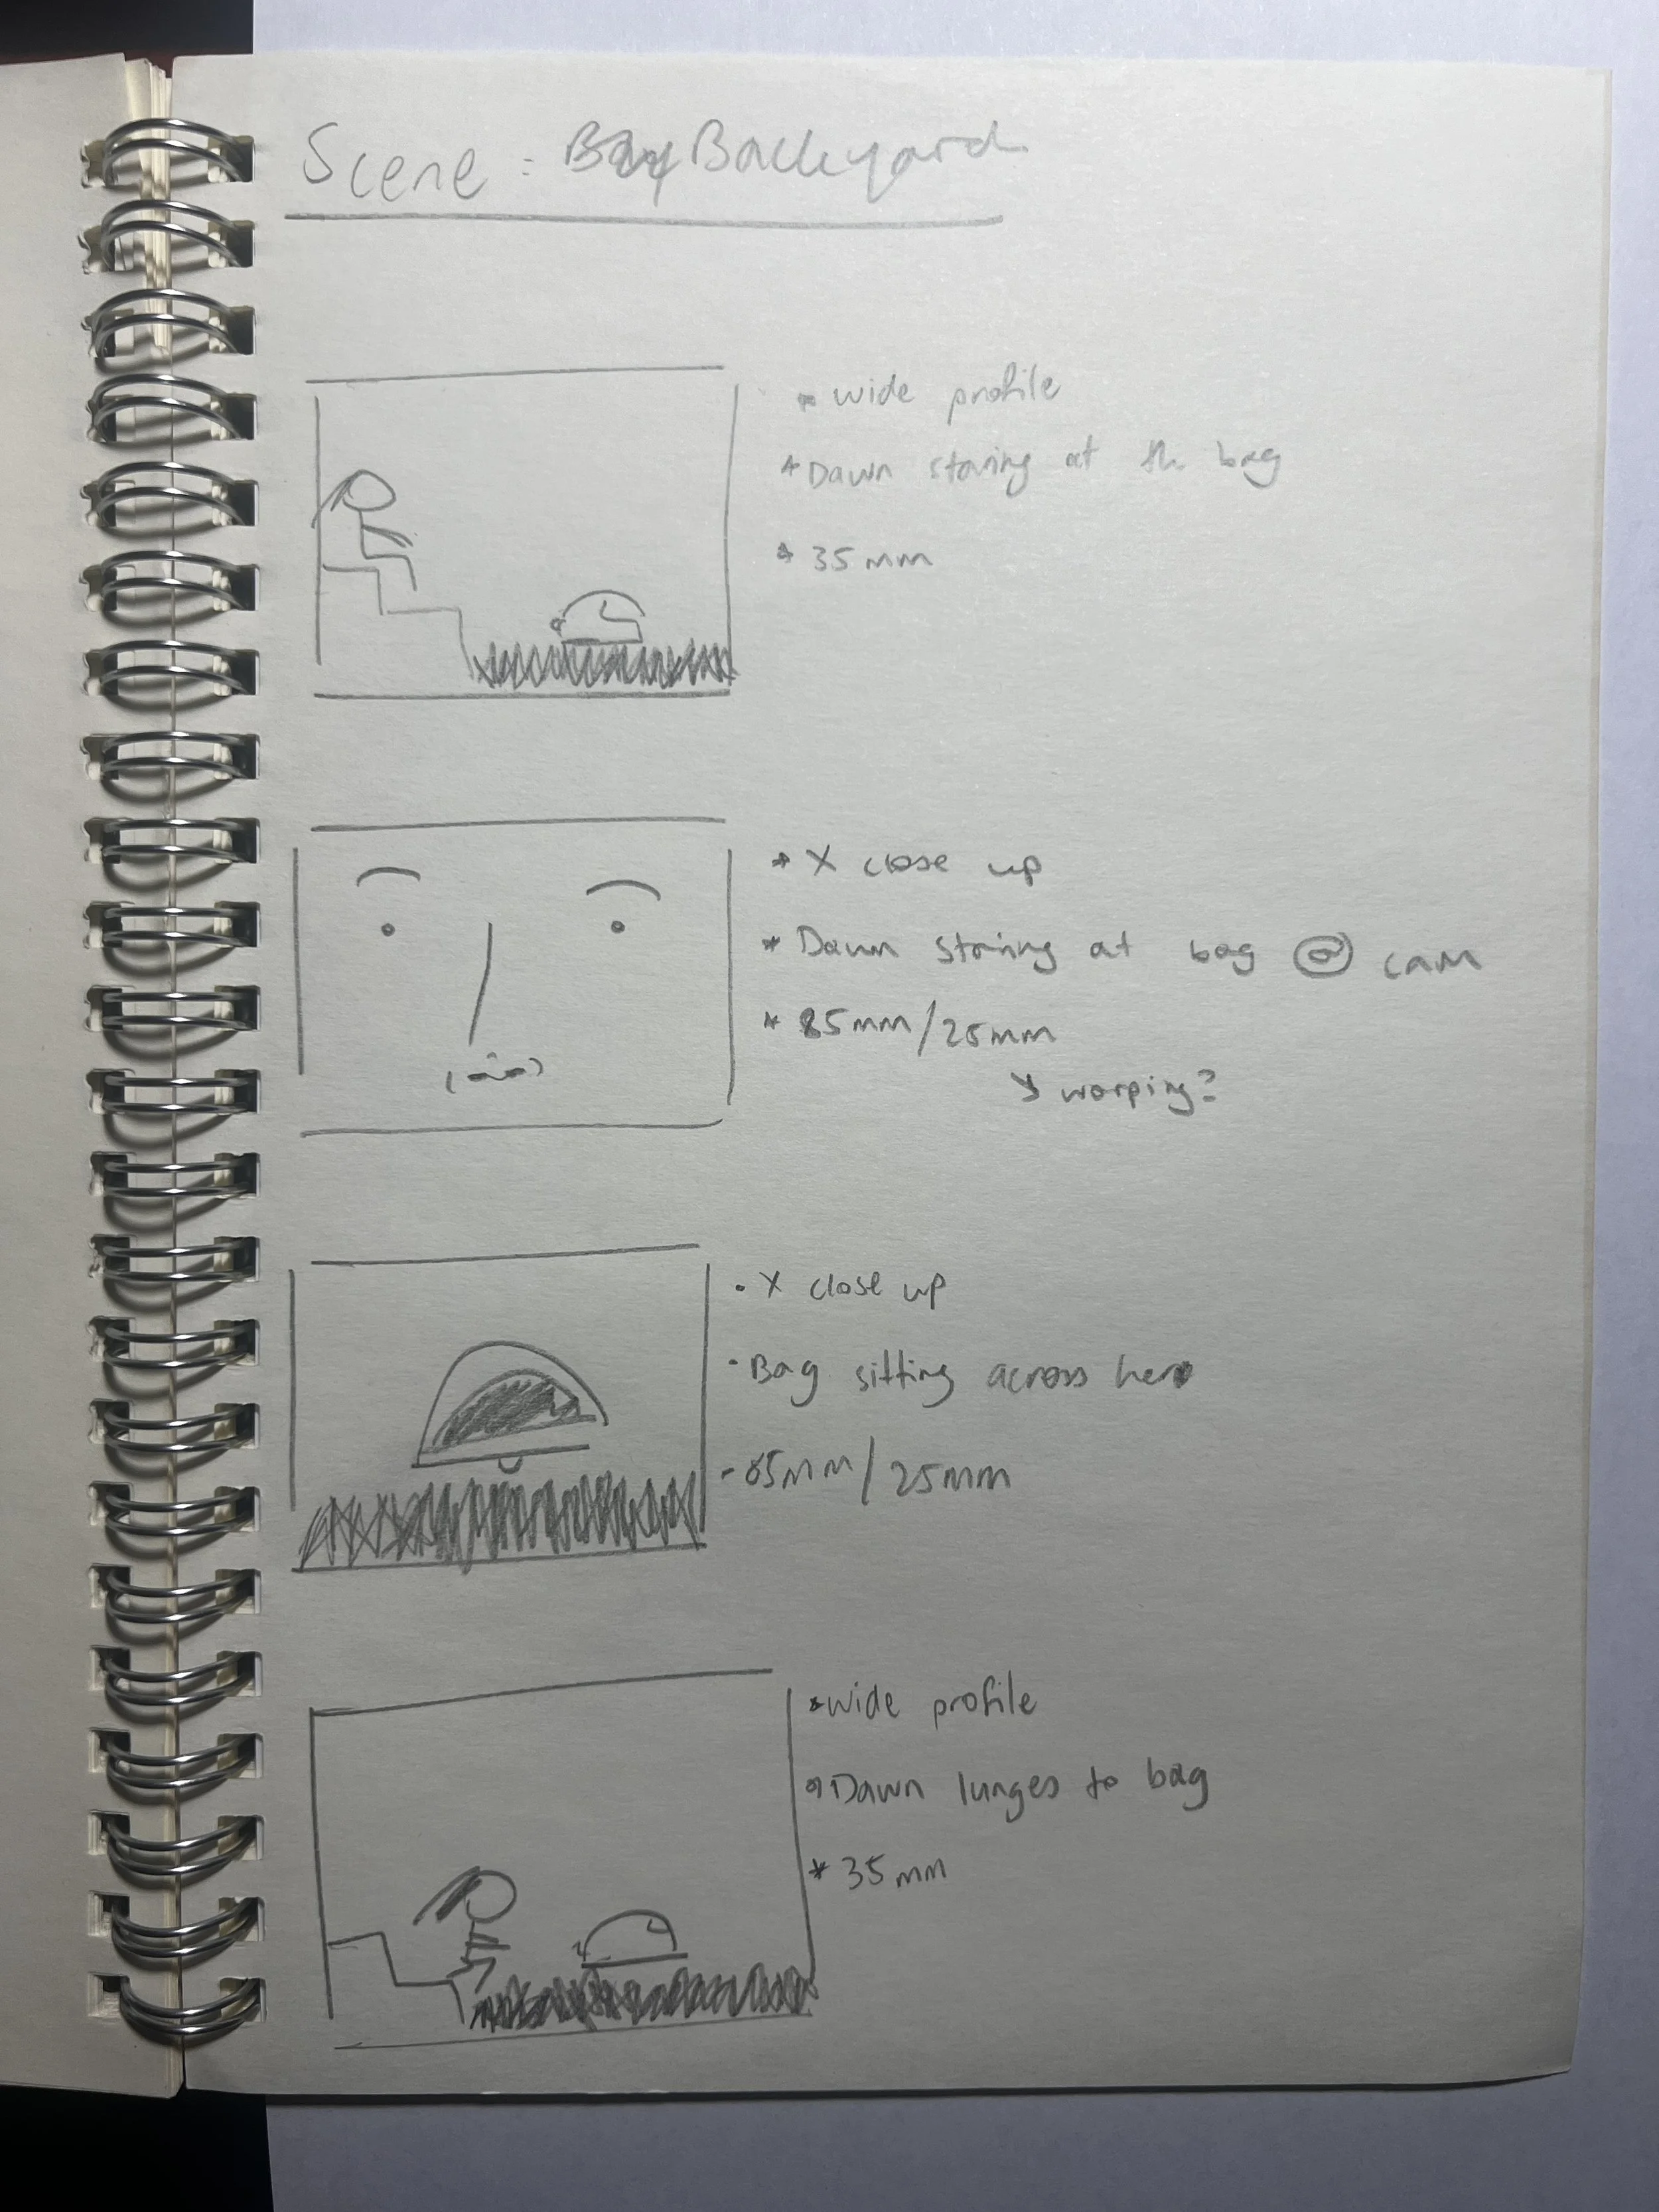 Scene: Backyard
* wide profile
* Dawn staring at the bag
* 35mm
* X close up
* Dawn staring at bag @ cam
* 85mm/25mm
↘ warping?
• X close up
• Bag sitting across her
- 85mm/25mm
* wide profile
* Dawn lunges to bag
* 35mm